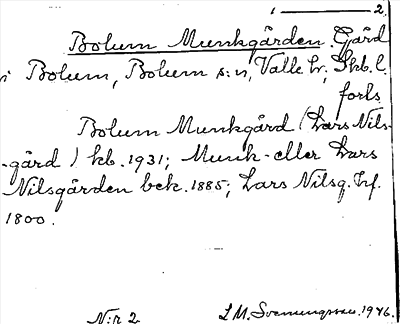 1 ——— 2.
Bolum Munkgården. Gård
i Bolum, Bolum s:n, Valle hr; Skb. l.
forts
Bolum Munkgård (Lars Nils-
-gård) kb. 1931; Munk- eller Lars
Nilsgården bek. 1885; Lars Nilsg. hf.
1800.
N:r 2 L M. Svenungsson. 1946.